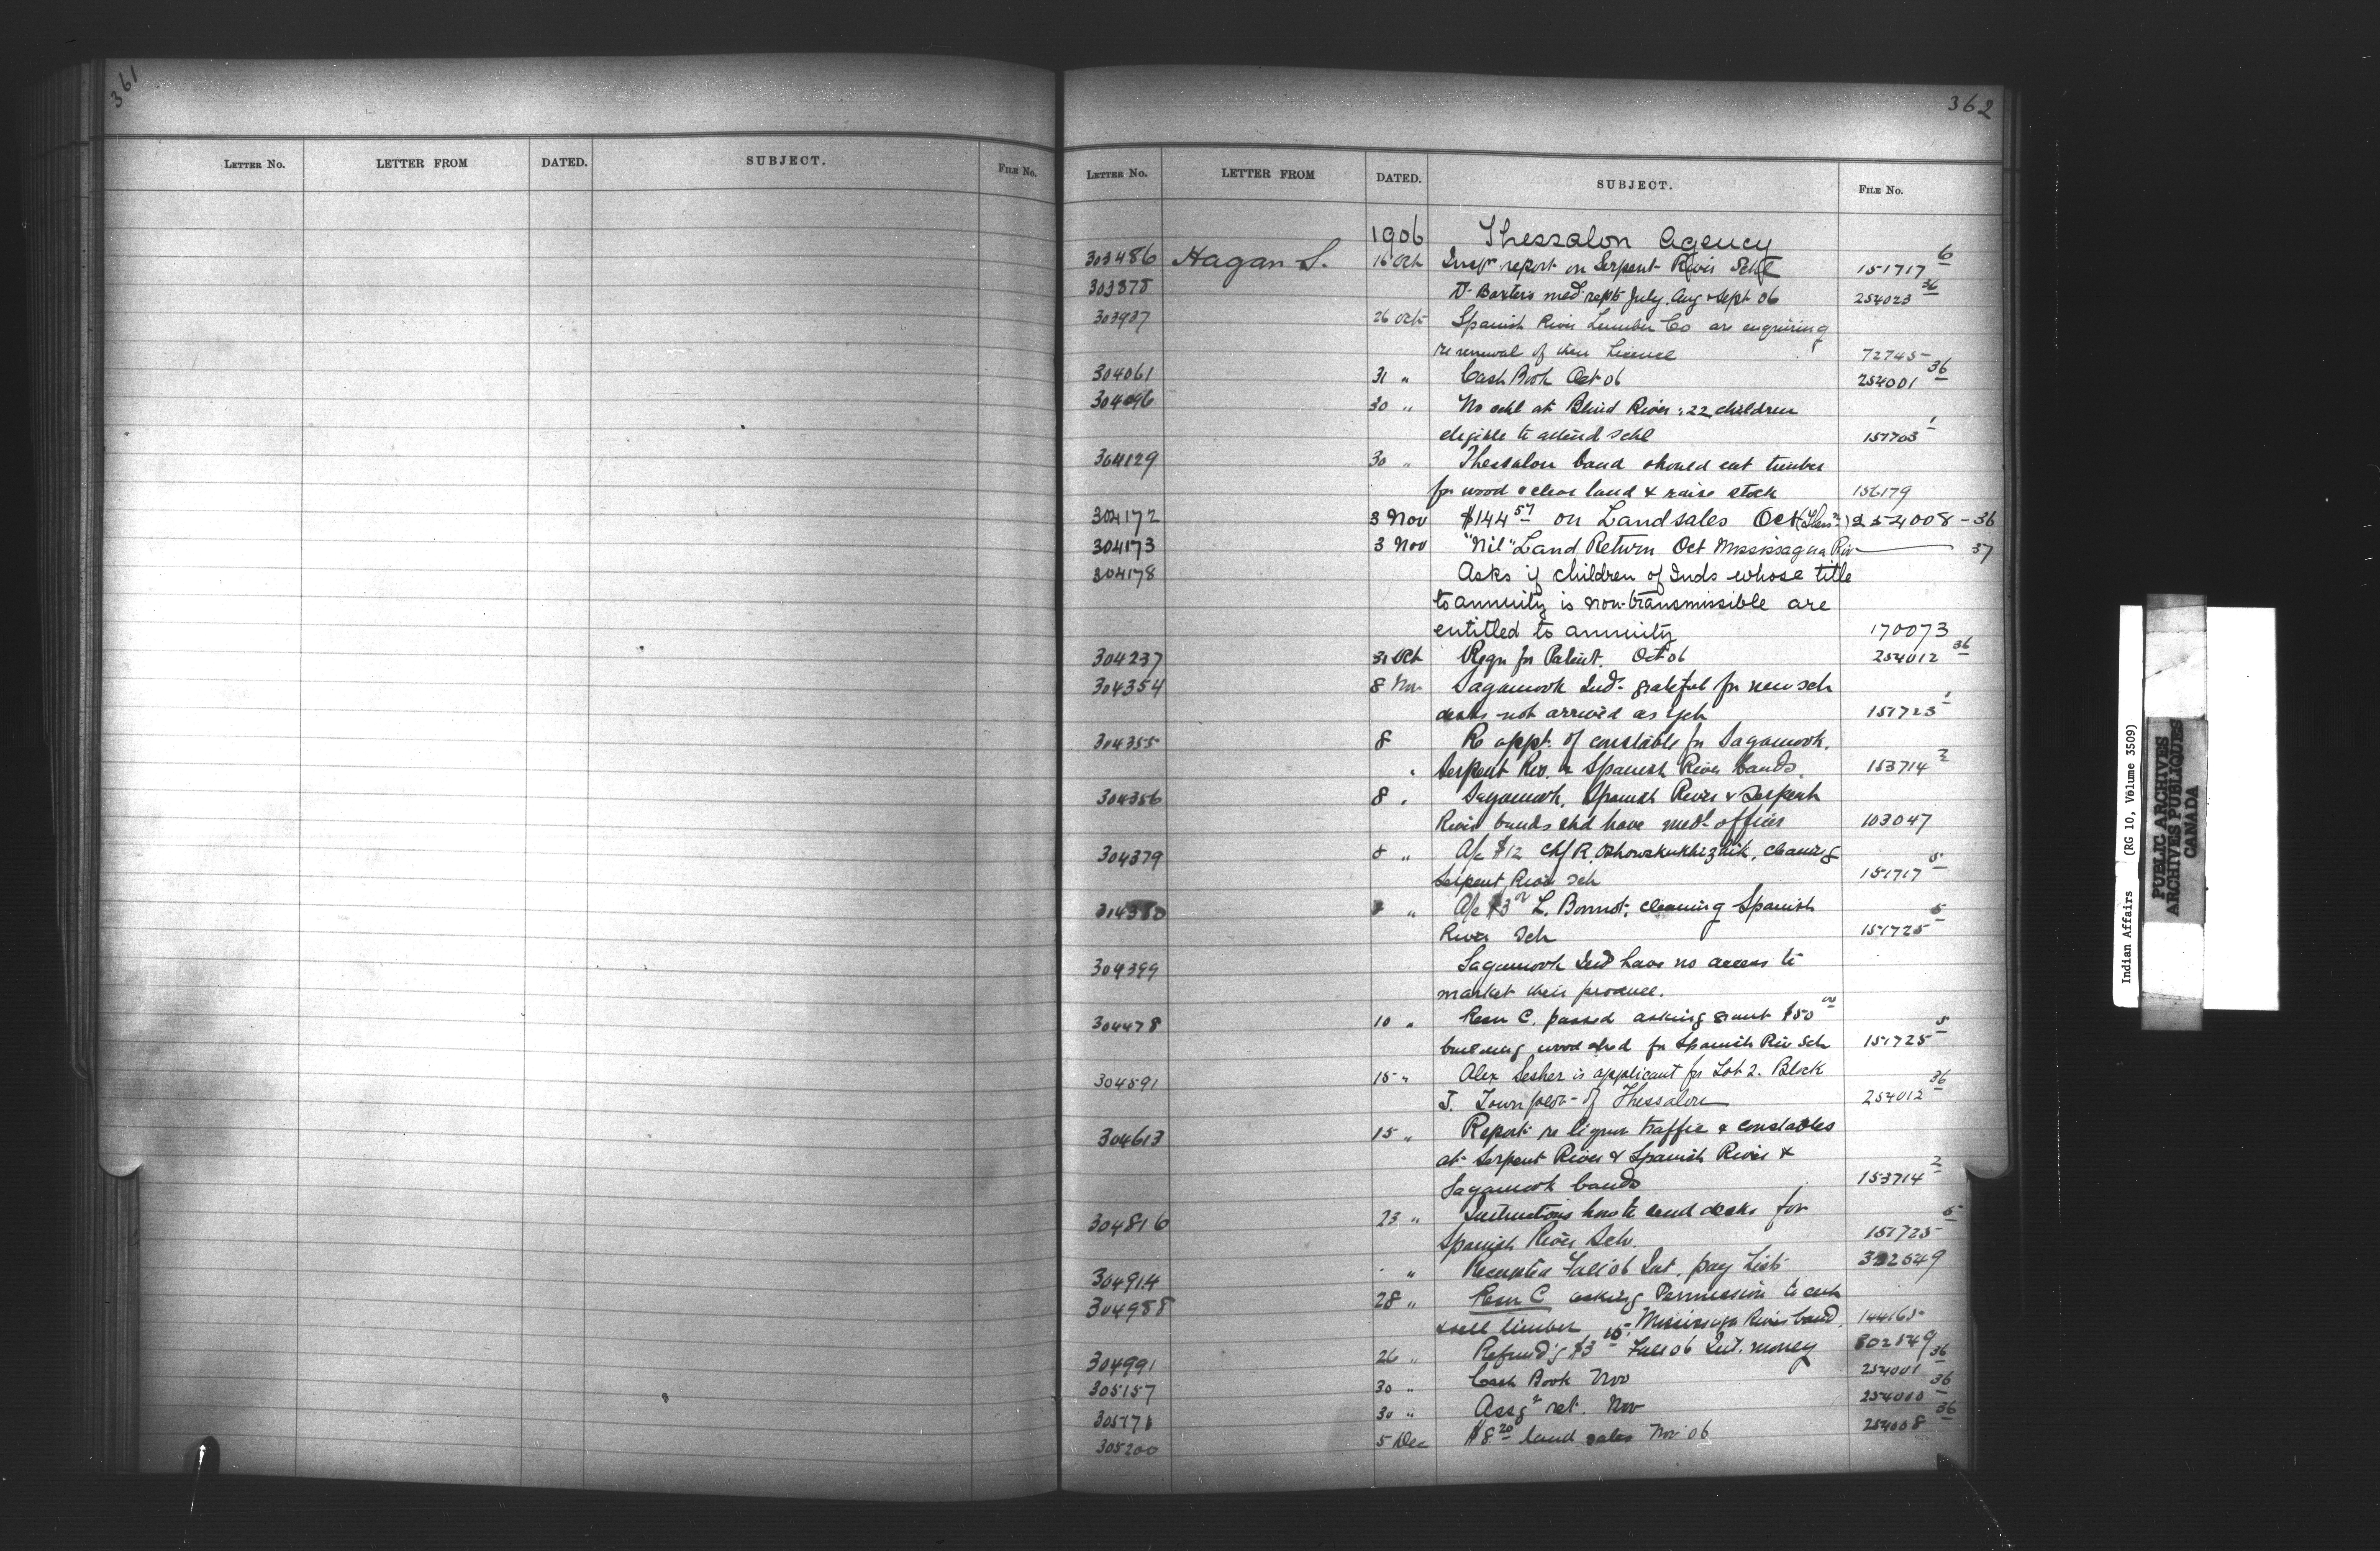 361
LETTER NO. LETTER FROM DATED. SUBJECT. FILE NO.
362
LETTER NO. LETTER FROM DATED. SUBJECT. FILE NO.
1906 Thessalon Agency
303486 Hagan S. 16 Oct Inspr report on Serpent River Schl 151717 6
303878 Dr Baxter's med. rept July, Aug & Sept 06 254023 36
303937 26 Oct Spanish River Lumber Co are enquiring
re renewal of their License 72745
304061 31 " Cash Book Oct 06 254001 36
304096 30 " No schl at Blind River; 22 children
eligible to attend schl 151703 1
304129 30 " Thessalon band should cut timber
for wood & clear land & raise stock 156179
304172 3 Nov $144 57 on Land sales Oct 254008-36
304173 3 Nov "Nil" Land Return Oct Mississagua Riv 37
304178 Asks if children of Inds whose title
to annuity is non-transmissible are
entitled to annuity 170073
304237 31 Oct Reqn for Patent. Oct 06 254012 36
304354 8 Nov Sagamook Inds grateful for new sch
desks - not arrived as yet 151723 1
304355 8 Re appt. of constable for Sagamook,
" Serpent Riv. & Spanish River bands. 153714 2
304356 8 " Sagamook, Spanish River & Serpent
River bands shd have medl officer 103047
304379 8 " A/c $12 Chf R. cleaning
Serpent River Sch 151717 5
304380 8 " A/c $3 L. cleaning Spanish
River Sch 151725 5
304399 Sagamook Ind have no access to
market their produce.
304478 10 " Resn C. passed asking grant $50 00
building wood shed for Spanish Riv Sch 151725 5
304591 15 " Alex Lesher is applicant for Lot 2. Block
J. Town plot of Thessalon 254012 36
304613 15 " Report re liquor traffic & constables
at Serpent River & Spanish River &
Sagamook bands 153714 2
304816 23 " Instructions how to send desks for
Spanish River Sch. 151725 5
304914 " " Receipted Fall 06 Int. pay Lists 302549
304988 28 " Resn C asking Permission to cut
& sell timber Mississaga River band. 144165
304991 26 " Refund'g $3 15 Fall 06 Int. money 302549
305157 30 " Cash Book Nov 254001 36
305171 30 " Assgt ret. Nov 254010 36
305200 5 Dec $8 20 land sales Nov 06 254008 36
Indian Affairs (RG 10, Volume 3509)
PUBLIC ARCHIVES
ARCHIVES PUBLIQUES
CANADA